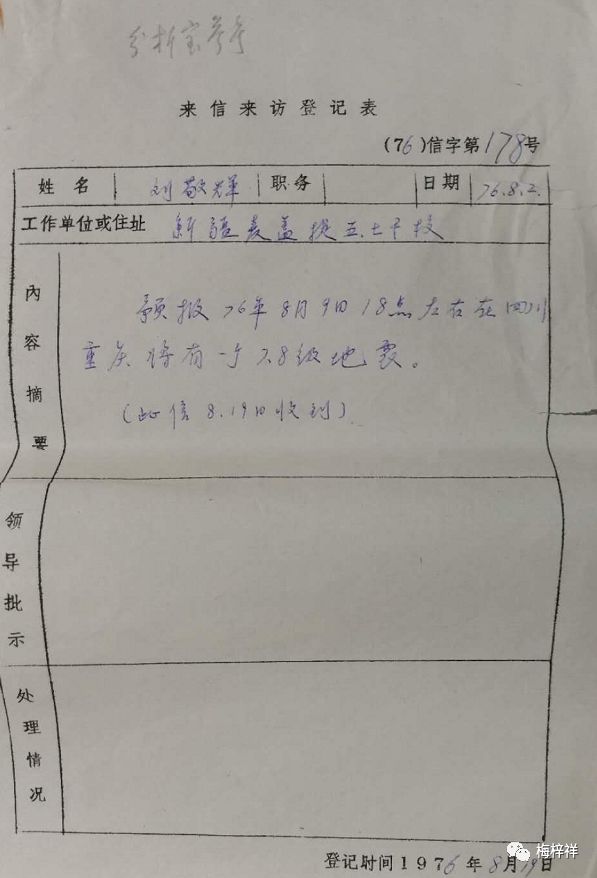 分析室参考
来信来访登记表
(76)信字第178号
姓名 刘敬辉 职务 日期 76.8.2.
工作单位或住址 新疆麦盖提五七干校
内容摘要
预报76年8月9日18点左右在四川
重庆将有一个7.8级地震。
(此信8.19日收到)
领导批示
处理情况
登记时间1976年8月19日
梅梓祥